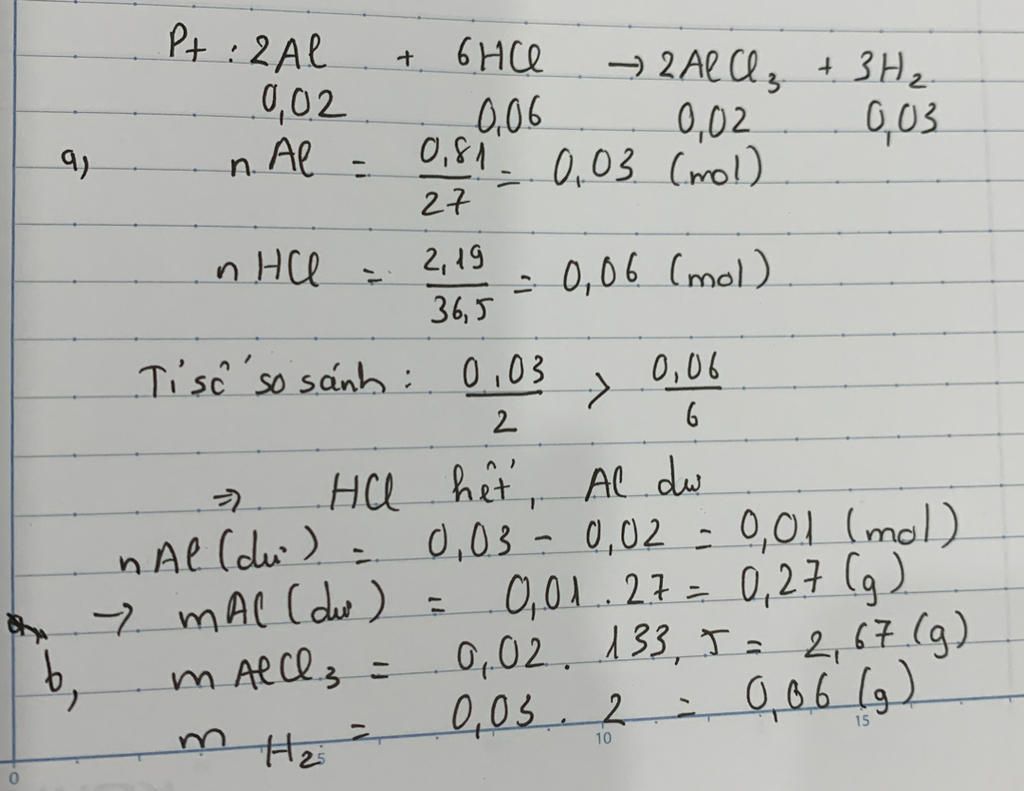 Pt : 2Al + 6HCl → 2AlCl₃ + 3H₂
0,02 0,06 0,02 0,03
a, n Al = 0,81/27 = 0,03 (mol)
n HCl = 2,19/36,5 = 0,06 (mol)
Tỉ số so sánh : 0,03/2 > 0,06/6
⇒ HCl hết, Al dư
nAl (dư) = 0,03 - 0,02 = 0,01 (mol)
→ mAl (dư) = 0,01 . 27 = 0,27 (g)
b, m AlCl₃ = 0,02 . 133,5 = 2,67 (g)
m H₂ = 0,03 . 2 = 0,06 (g)
0 5 10 15